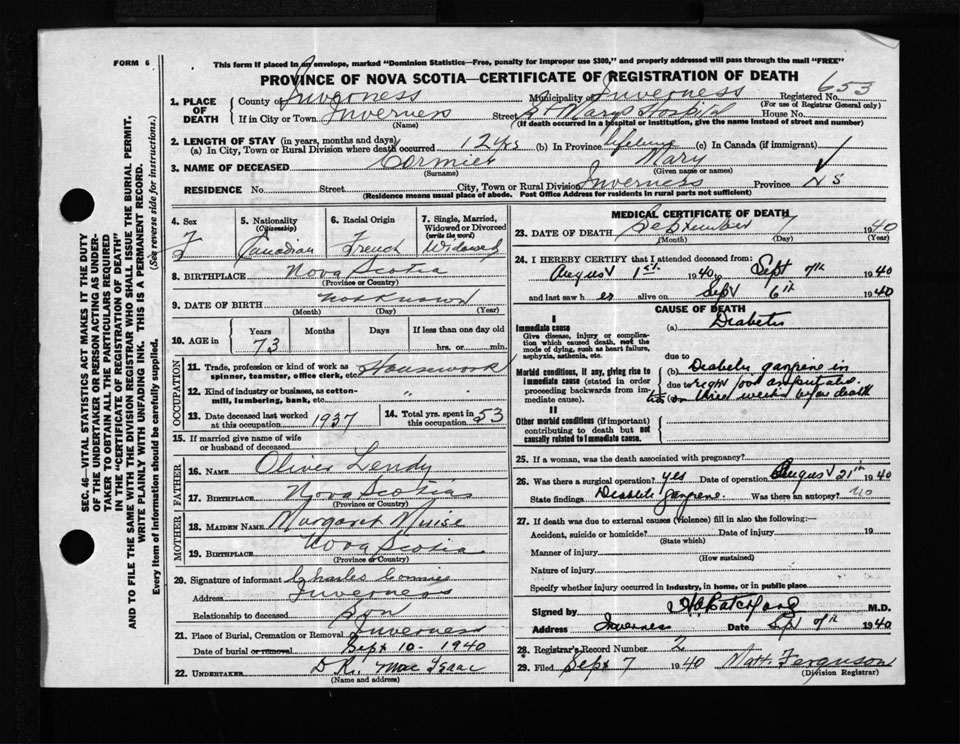 FORM 6
This form if placed in an envelope, marked "Dominion Statistics—Free, penalty for improper use $300," and properly addressed will pass through the mail "FREE"
PROVINCE OF NOVA SCOTIA—CERTIFICATE OF REGISTRATION OF DEATH
653
1. PLACE OF DEATH County of Inverness Municipality of Inverness Registered No.
(For use of Registrar General only)
If in City or Town Inverness Street St Mary's Hospital House No.
(Name) (If death occurred in a hospital or institution, give the name instead of street and number)
2. LENGTH OF STAY (in years, months and days)
(a) In City, Town or Rural Division where death occurred 12 yrs (b) In Province lifetime (c) In Canada (if immigrant)
3. NAME OF DECEASED Cormier Mary
(Surname) (Given name or names)
RESIDENCE No. Street City, Town or Rural Division Inverness Province N S
(Residence means usual place of abode. Post Office Address for residents in rural parts not sufficient)
4. Sex 5. Nationality (Citizenship) 6. Racial Origin 7. Single, Married, Widowed or Divorced (write the word)
F Canadian French Widowed
8. BIRTHPLACE Nova Scotia
(Province or Country)
9. DATE OF BIRTH not known
(Month) (Day) (Year)
10. AGE in Years Months Days If less than one day old
73 hrs. or min.
OCCUPATION
11. Trade, profession or kind of work as spinner, teamster, office clerk, etc. Housework
12. Kind of industry or business, as cotton-mill, lumbering, bank, etc. "
13. Date deceased last worked at this occupation 1937 14. Total yrs. spent in this occupation 53
15. If married give name of wife or husband of deceased
FATHER
16. NAME Oliver Lendy
17. BIRTHPLACE Nova Scotia
(Province or Country)
MOTHER
18. MAIDEN NAME Margaret Muise
19. BIRTHPLACE Nova Scotia
(Province or Country)
20. Signature of informant Charles Cormier
Address Inverness
Relationship to deceased Son
21. Place of Burial, Cremation or Removal Inverness
Date of burial or removal Sept 10 - 1940
22. UNDERTAKER D. R. MacIsaac
(Name and address)
MEDICAL CERTIFICATE OF DEATH
23. DATE OF DEATH September 7 1940
(Month) (Day) (Year)
24. I HEREBY CERTIFY that I attended deceased from:
August 1st 1940 to Sept 7th 1940
and last saw her alive on Sept 6th 1940
CAUSE OF DEATH
I
Immediate cause (a) Diabetes
Give disease, injury or complication which caused death, not the mode of dying, such as heart failure, asphyxia, asthenia, etc.
due to
Morbid conditions, if any, giving rise to immediate cause (stated in order proceeding backwards from immediate cause). (b) Diabetic gangrene in
due to right foot amputated
(c) on three weeks before death
II
Other morbid conditions (if important) contributing to death but not causally related to immediate cause.
25. If a woman, was the death associated with pregnancy?
26. Was there a surgical operation? yes Date of operation August 21th 1940
State findings Diabetic gangrene Was there an autopsy? no
27. If death was due to external causes (violence) fill in also the following:—
Accident, suicide or homicide? Date of injury 19
(State which)
Manner of injury
(How sustained)
Nature of injury
Specify whether injury occurred in industry, in home, or in public place
Signed by M.D.
Address Inverness Date Sept 7th 1940
28. Registrar's Record Number 2
29. Filed Sept 7 1940 Matt. Ferguson
(Division Registrar)
SEC. 46—VITAL STATISTICS ACT MAKES IT THE DUTY
OF THE UNDERTAKER OR PERSON ACTING AS UNDER-
TAKER TO OBTAIN ALL THE PARTICULARS REQUIRED
IN THE "CERTIFICATE OF REGISTRATION OF DEATH"
AND TO FILE THE SAME WITH THE DIVISION REGISTRAR WHO SHALL ISSUE THE BURIAL PERMIT.
WRITE PLAINLY WITH UNFADING INK. THIS IS A PERMANENT RECORD.
Every item of information should be carefully supplied. (See reverse side for instructions.)